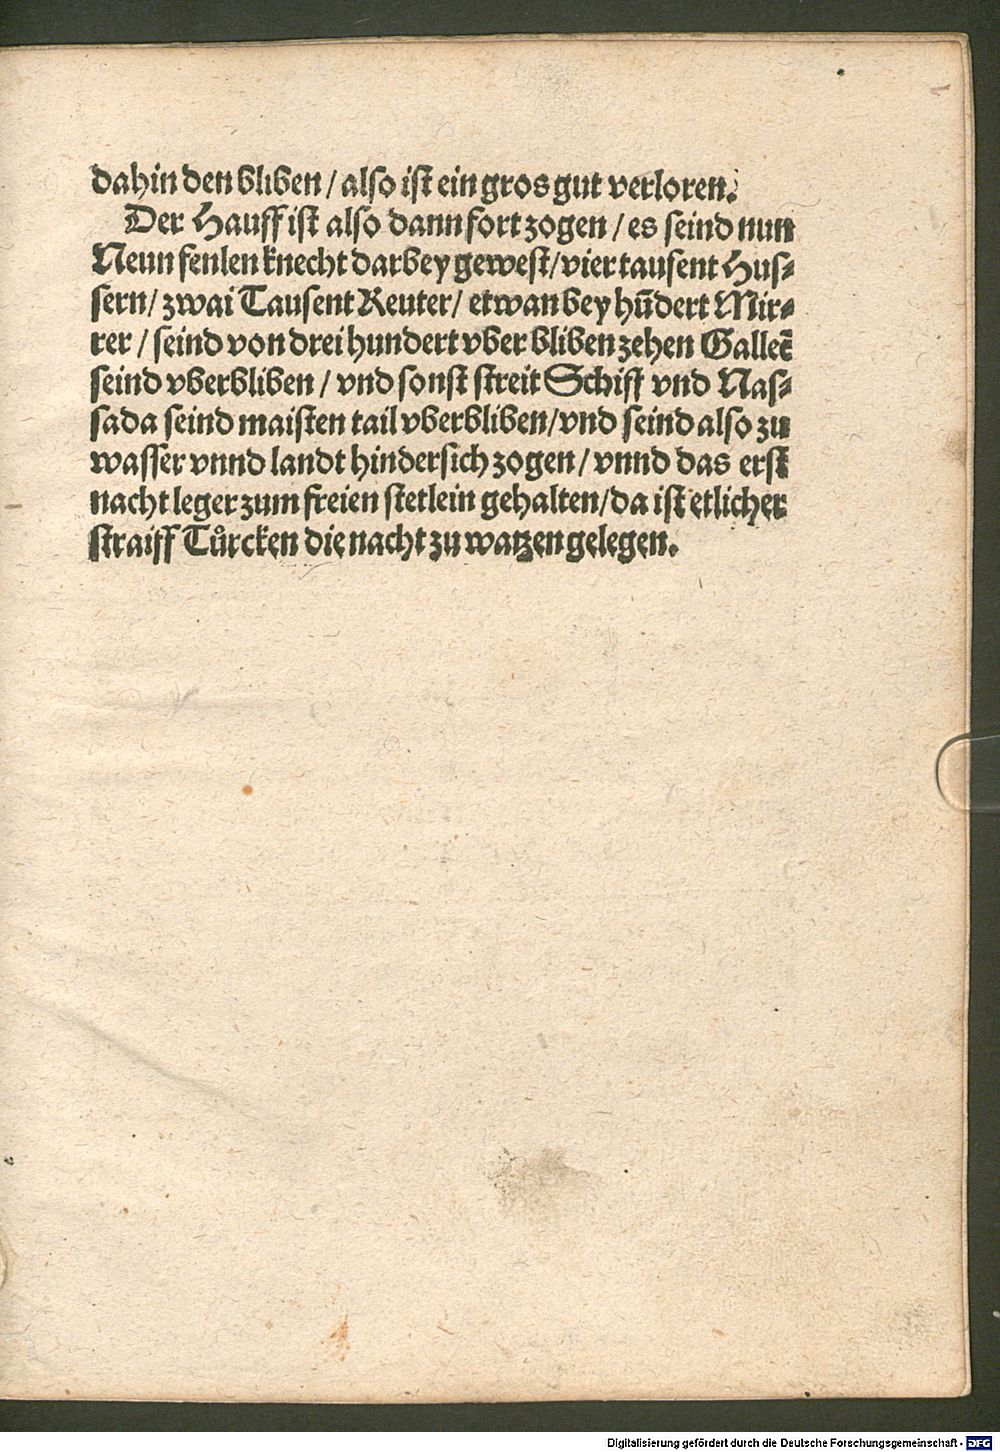 dahin den bliben / also ist ein gros gut verloren.
Der Hauff ist also dann fort zogen / es seind nun
Neun fenlen knecht darbey gewest / vier tausent Hus-
sern / zwai Tausent Reuter / etwan bey hūdert Mir-
rer / seind von drei hundert vber bliben zehen Galleē
seind vberbliben / vnd sonst streit Schiff vnd Nas-
sada seind maisten tail vberbliben / vnd seind also zu
wasser vnnd landt hindersich zogen / vnnd das erst
nacht leger zum freien stetlein gehalten / da ist etlicher
straiff Tuͤrcken die nacht zu watzen gelegen.
Digitalisierung gefördert durch die Deutsche Forschungsgemeinschaft - DFG